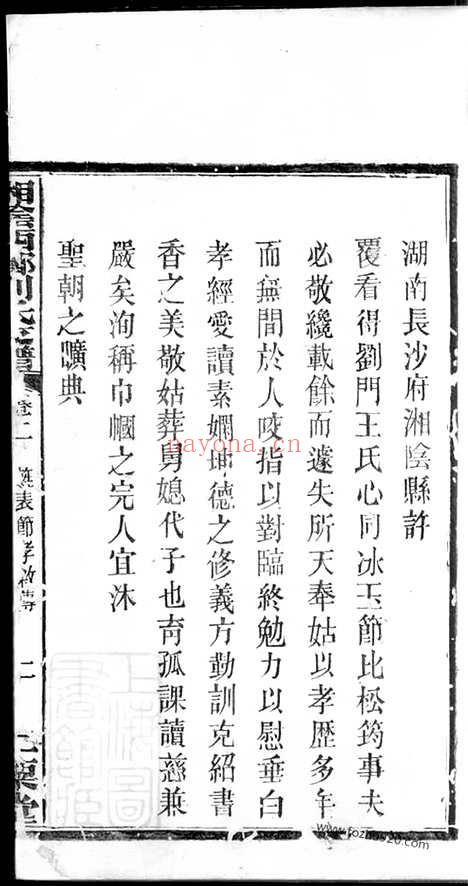 湖南長沙府湘陰縣許
覆看得劉門王氏心同冰玉節比松筠事夫
必敬纔載餘而遽失所天奉姑以孝歷多年
而無間於人咬指以對臨終勉力以慰垂白
孝經愛讀素嫻坤德之修義方勤訓克紹書
香之美敬姑葬舅媳代子也育孤課讀慈兼
嚴矣洵稱巾幗之完人宜沐
聖朝之曠典
湘陰西鄉劉氏支譜
卷二
表節孝
二
nayona.cn
www.fozhu920.com